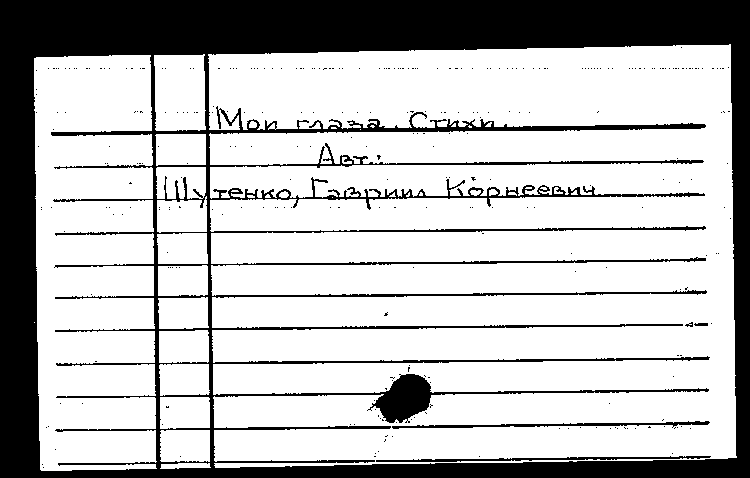 Мои глаза. Стихи.
Авт.:
Шутенко, Гавриил Корнеевич.